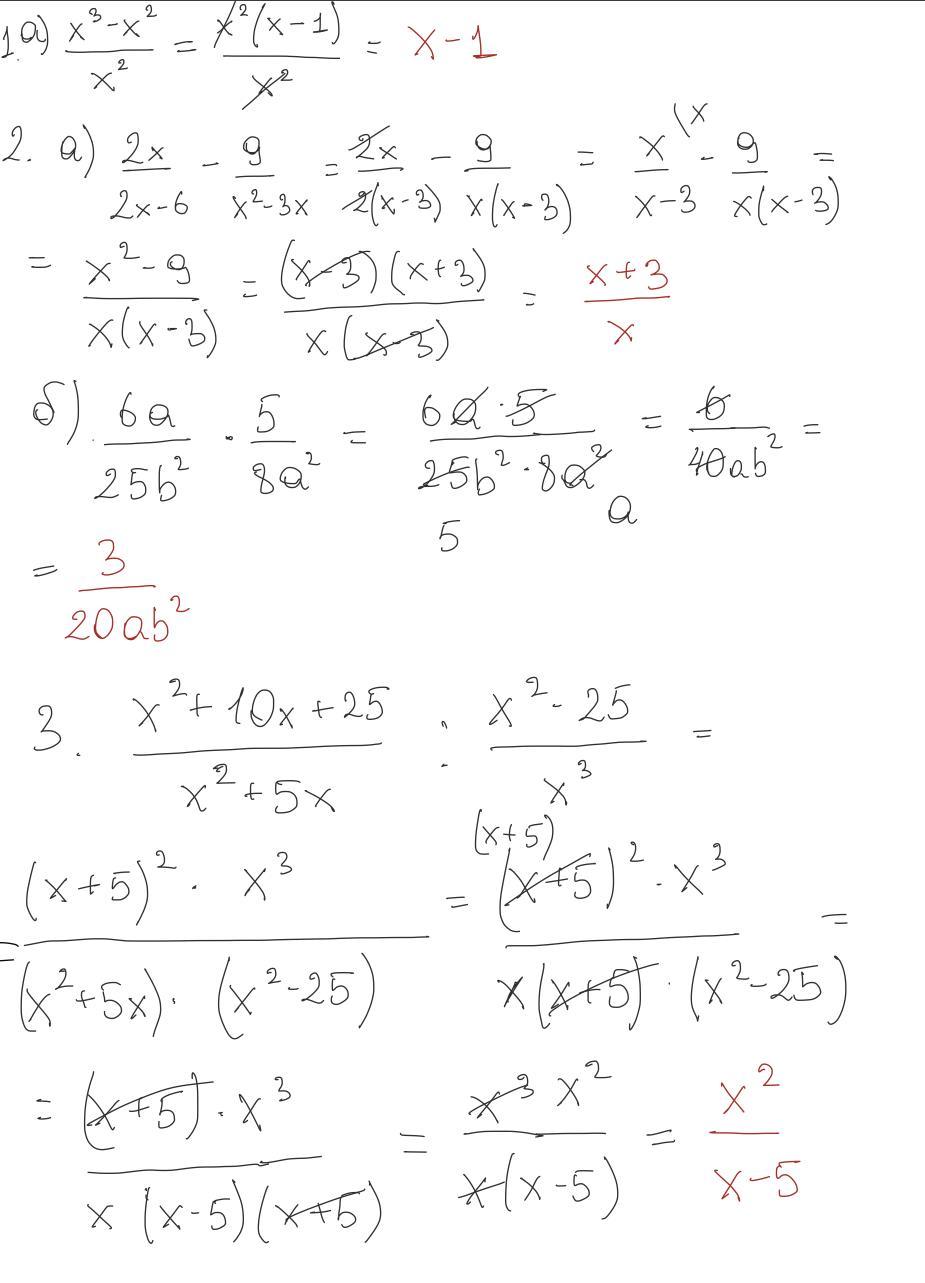 1.а) (x³-x²)/x² = x²(x-1)/x² = x-1
2. а) 2x/(2x-6) - 9/(x²-3x) = 2x/(2(x-3)) - 9/(x(x-3)) = x/(x-3) (x - 9/(x(x-3)) =
= (x²-9)/(x(x-3)) = (x-3)(x+3)/(x(x-3)) = (x+3)/x
б) 6a/(25b²) · 5/(8a²) = (6a·5)/(25b²·8a²) 5 a = 6/(40ab²) =
= 3/(20ab²)
3. (x²+10x+25)/(x²+5x) : (x²-25)/x³ =
= ((x+5)²· x³)/((x²+5x)· (x²-25)) = (x+5) ((x+5)²·x³)/(x(x+5)·(x²-25)) =
= ((x+5)·x³)/(x (x-5)(x+5)) = x³ x²/(x(x-5)) = x²/(x-5)